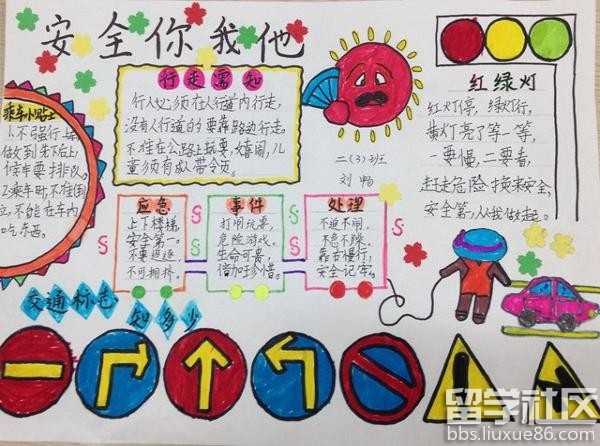 安全你我他
乘车小贴士
1.不强行上车,
做到先下后上,
候车要排队。
2.乘车时不准倒
立,不能在车内
吃东西。
行走需知
行人必须在人行道内行走,
没有人行道的要靠路边行走。
不准在公路上玩耍、嬉闹,儿
童须有成人带领。
二(3)班
刘畅
红绿灯
红灯停,绿灯行,
黄灯亮了等一等,
一要慢,二要看,
赶走危险换来安全,
安全第一,从我做起。
应急
上下楼梯,
安全第一。
不要追逐
不可拥挤。
事件
打闹玩耍,
危险游戏。
生命可贵,
倍加珍惜。
处理
不追不闹,
不急不躁。
靠右慢行,
安全记牢。
交通标志
知多少
留学社区
bbs.liuxue86.com